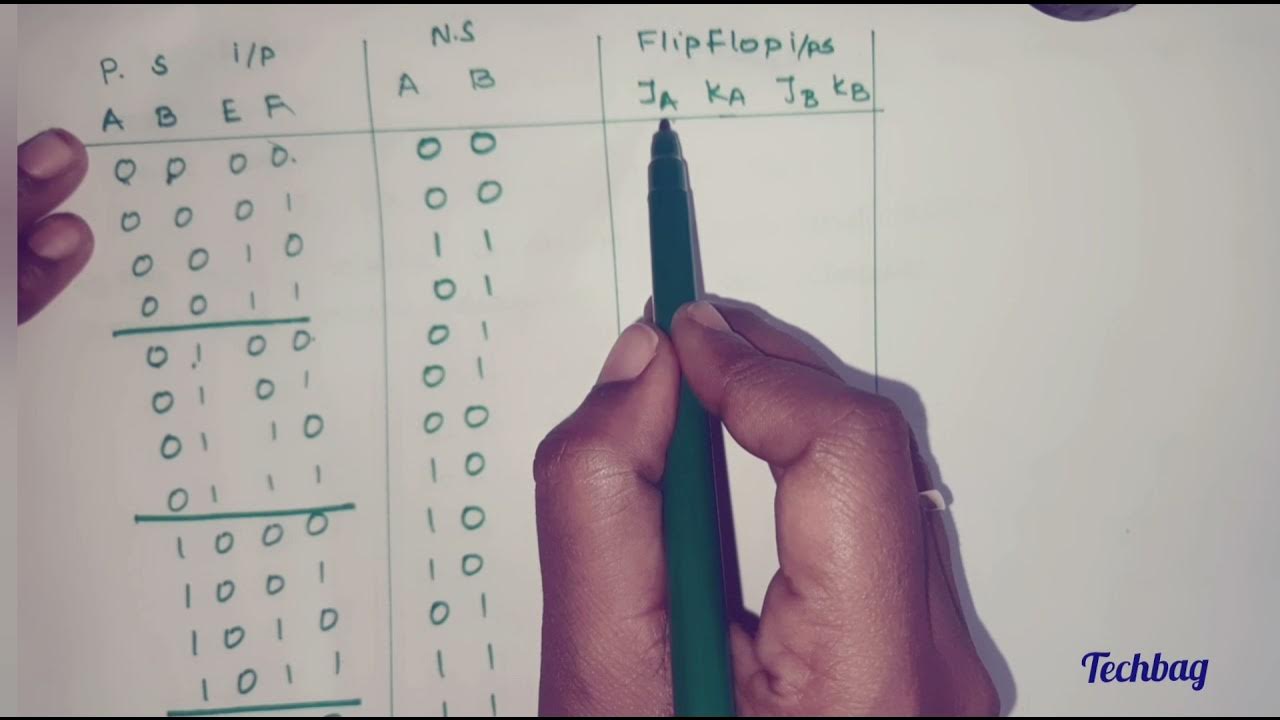 P. S i/p N.S FlipFlop i/ps
A B E F A B JA KA JB KB
0 0 0 0. 0 0
0 0 0 1 0 0
0 0 1 0 1 1
0 0 1 1 0 1
0 1 0 0 0 1
0 1 0 1 0 1
0 1 1 0 0 0
0 1 1 1 1 0
1 0 0 0 1 0
1 0 0 1 1 0
1 0 1 0 0 1
1 0 1 1 1 1
1 1
Techbag